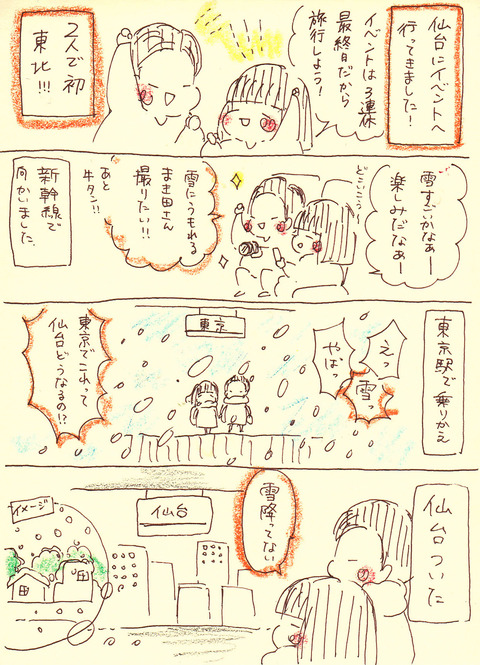 仙台にイベントへ
行ってきました!
イベントは3連休
最終日だから
旅行しよう!
2人で初
東北!!!
雪すごいかなぁー
楽しみだなぁー
どこいこうー
雪にうもれる
まき田さん
撮りたい!!
あと
牛タン!!
新幹線で
向かいました。
東京駅で乗りかえ
えっ
雪っ
やばっ
東京
東京でこれって
仙台どうなるの!?
仙台ついた
雪降ってない
仙台
イメージ